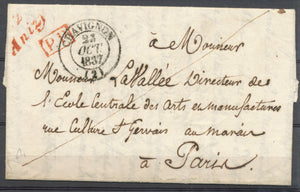 Anizy
P.P.
CHAVIGNON
23
OCT
1837
(2)
à Monsieur
Monsieur Lavallée Directeur de
l'Ecole Centrale des Arts et manufactures
rue Culture St Gervais au marais
à Paris